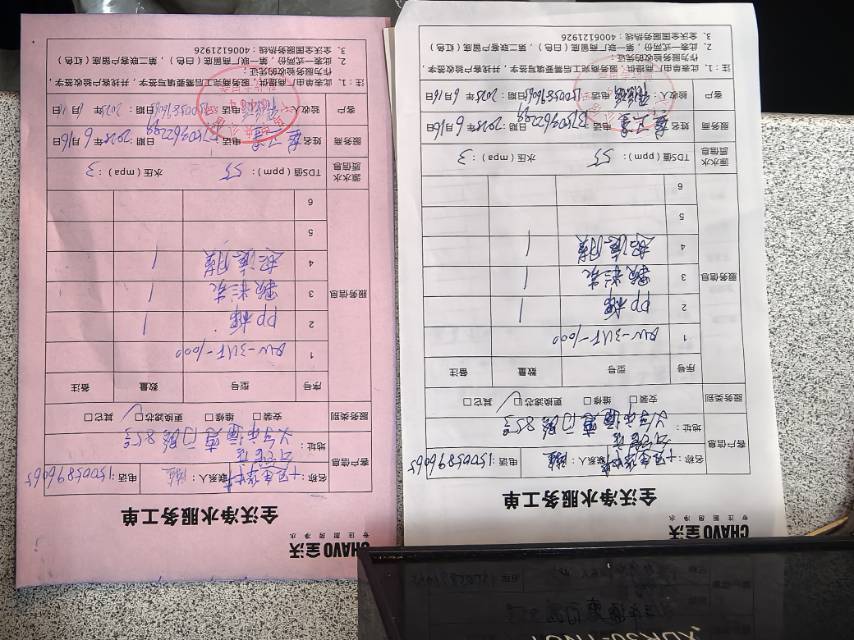 CHAVO全沃
专注厨房净水
全沃净水服务工单
客户信息
名称：
联系人：
电话：15005896065
地址：
服务类别
安装□ 维修□ 更换滤芯□ 其它□
服务信息
序号 型号 数量 备注
1 QW-3UF-1000
2 PP棉 1
3 颗粒炭 1
4 超滤膜 1
5
6
源水水质信息
TDS值（ppm）：55 水压（mpa）：3
服务商
姓名 电话 日期 2025年6月16日
客户
验收人： 电话 日期：2025年6月16日
注：1、此表单由厂商提供，服务商施工后需要填写签字，并找客户验收签字，
作为服务验收的凭证；
2、此表一式两份，第一联厂商留底（白色），第二联客户留底（红色）
3、全沃全国服务热线：4006121926
CHAVO全沃
专注厨房净水
全沃净水服务工单
客户信息
名称：
联系人：
电话：15005896065
地址：
服务类别
安装□ 维修□ 更换滤芯□ 其它□
服务信息
序号 型号 数量 备注
1 QW-3UF-1000
2 PP棉 1
3 颗粒炭 1
4 超滤膜 1
5
6
源水水质信息
TDS值（ppm）：55 水压（mpa）：3
服务商
姓名 电话 日期 2025年6月16日
客户
验收人： 电话 日期：2025年6月16日
注：1、此表单由厂商提供，服务商施工后需要填写签字，并找客户验收签字，
作为服务验收的凭证；
2、此表一式两份，第一联厂商留底（白色），第二联客户留底（红色）
3、全沃全国服务热线：4006121926